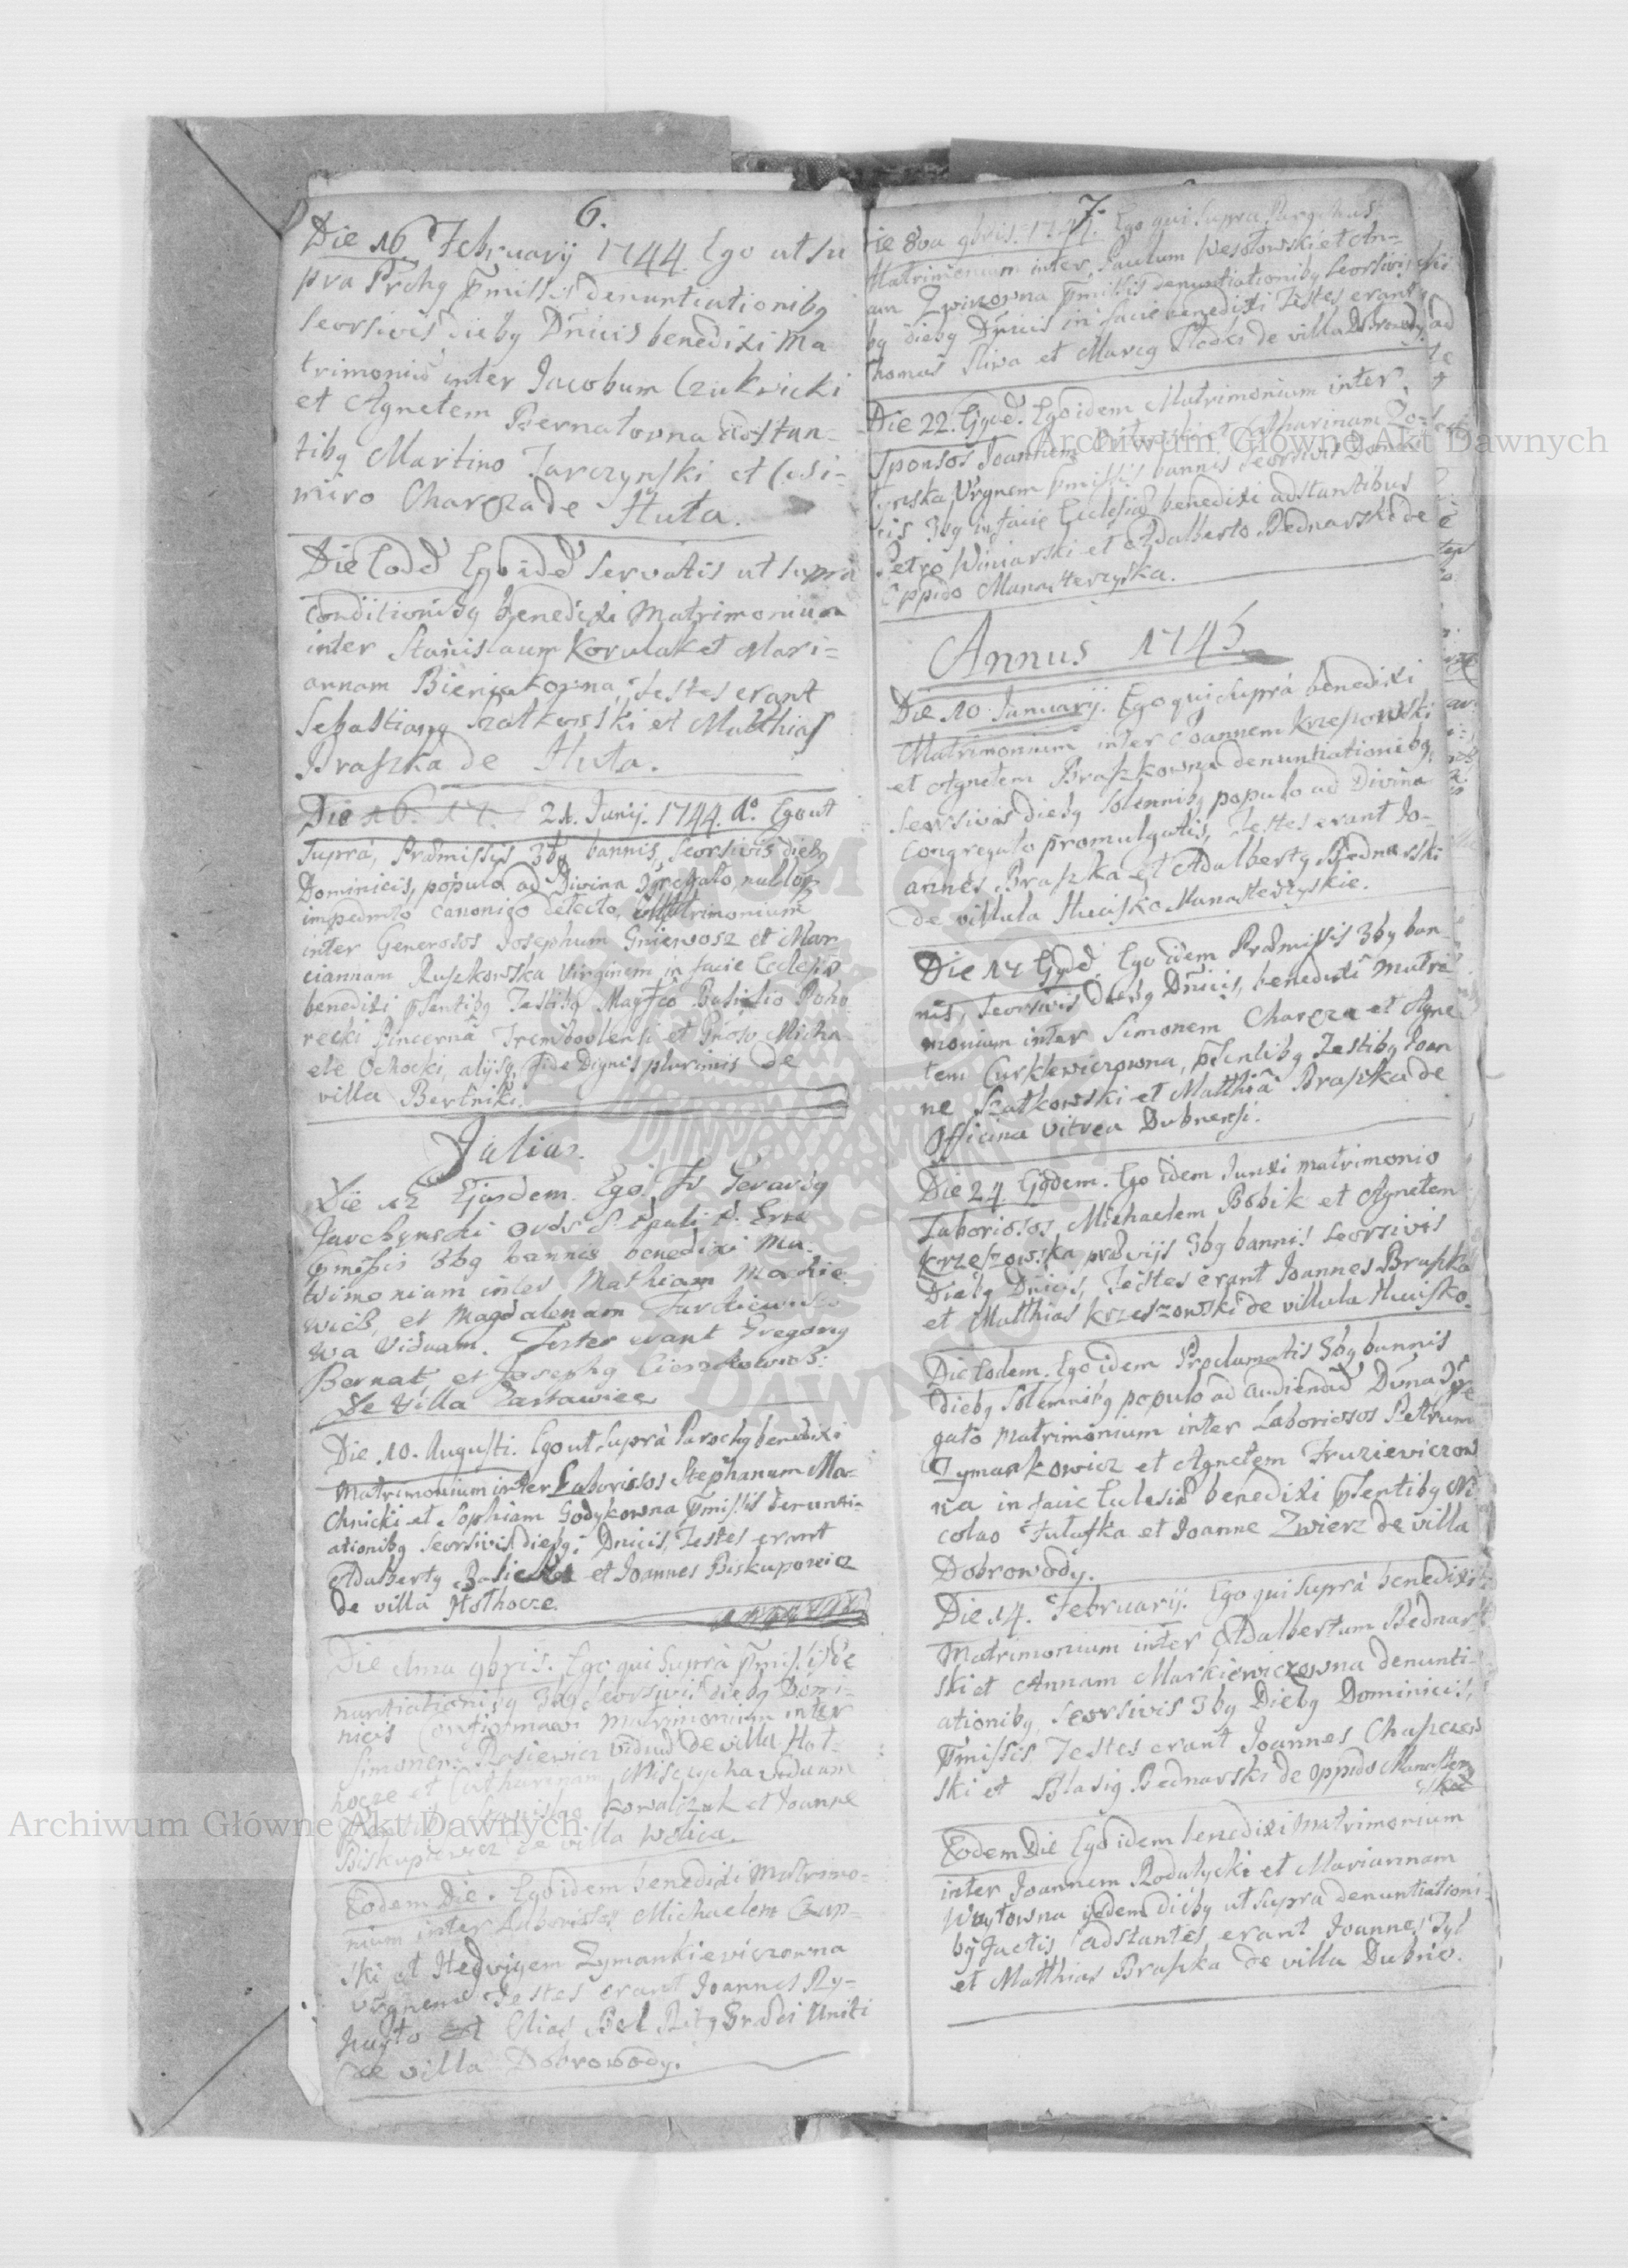 6.
Die 16 February 1744 Ego ut su
pra Prchg Pmissis denuntiationibg
seorsivis diebg Dnicis benedixi Ma
trimoniu inter Jacobum Czukwicki
et Agnetem Bernatowna adstan-
tibg Martino Jarczynski et Casi-
miro Charcza de Huta.
Die Eode Ego ide servatis ut supra
conditionibg benedixi Matrimonium
inter Stanislaum Korulak et Mari=
annam Bieniakowna, Testes erant
Sebastiang Szatkowski et Matthias
Braszka de Huta.
Die 16. 17. 21. Junij. 1744. Ao. Ego ut
supra, Praemissijs 3bg bannis, seorsivis diebg
Dominicis, populo ad Divina Ggregato, nulloq
impedmto canonico detecto, Matrimonium
inter Generosos Josephum Gniewosz et Mar
ciannam Ruszkowska Virginem in facie Ecclesiae
benedixi pSentibg Testibg Magfco Basilio Poho
recki Pincerna Trembovlensi et Gnoso Micha
ele Ochocki, alijsq fide Dignis plurimis de
villa Bertniki.
Julius.
Die 12 Ejusdem. Ego Fr Gerardg
Jarchynschi Ords S. Pauli P. Ere
Pmissis 3bg bannis benedixi Ma-
trimonium inter Mathiam Mackie
wicz, et Magdalenam Turkiewiczo
wa Viduam. Testes erant Gregorig
Bernat et Josephg Cieszkowicz
De Villa Zastawice
Die 10. Augusti. Ego ut Supra Parochg benedixi
Matrimonium inter Laboriosos Stephanum Ma=
chnicki et Sophiam Godykowna Pmissis denunti=
ationibg seorsivis diebg Dnicis, Testes erant
Adalbertg et Joannes Biskupowicz
de villa Hołhocze.
Die 1ma 9bris. Ego qui Supra Pmissis de
nuntiationibg 3bg seorsivis diebg Domi=
nicis Confirmavi Matrimonium inter
Simonem Rasiewicz viduu de villa Hoł=
hocze et Catharinam viduam
Stanislao Kowalczuk et Joanne
Biskupiewicz de villa Wolica.
Eodem Die. Ego idem benedixi Matrimo=
nium inter Laboriosos Michaelem Czap=
ski et Hedvigem Zymankieviczowna
Virgnem Testes erant Joannes Ry-
hayło et Elias Bel Ritg Graeci Uniti
de villa Dobrowody.
7.
Die 8va 9bris. 1744. Ego qui supra Parochus
Matrimonium inter Paulum Wesołowski et An=
am Zwirzowna Pmissis denuntiationibg seorsivis
bg diebg Dnicis in facie benedixi Testes erant
Thomas Sliwa et Marcg de villa
Die 22. Ejusd. Ego idem Matrimonium inter
Sponsos Joannem et Catharinam
Virgnem Pmissis bannis seorsivis Domi
cis 3bg in facie Ecclesiae benedixi adstantibus
Petro Winiarski et Adalberto Bednarski de
Oppido Manasterzyska.
Annus 1745.
Die 10 Januarij. Ego qui supra benedixi
Matrimonium inter Joannem Krzeszowski
et Agnetem Braszkowna denuntiationibg,
seorsivis diebg solennibg populo ad Divina
congregato promulgatis, Testes erant Jo-
annes Braszka et Adalbertg Bednarski
de villula Hucisko Manasterzyskie.
Die 17 Ejsde Ego idem Praemissis 3bg ban
nis, seorsivis diebg Dnicis, benedixi Matri
monium inter Simonem Charcza et Agne
tem Curklewiczowna, pSentibg Testibg Joan
ne Szatkowski et Matthia Braszka de
Officina vitrea Dubnensi.
Die 24 Ejsdem. Ego idem Junxi matrimonio
Laboriosos Michaelem Bobik et Agnetem
Krzeszowska praevijs 3bg bannis seorsivis
Diebg Dnicis, Testes erant Joannes Braszka
et Matthias Krzeszowski de villula Hucisko.
Die Eodem. Ego idem Proclamatis 3bg bannis
diebg Solemnibg populo ad audienda Divina Ggre
gato Matrimonium inter Laboriosos Petrum
Zymankowicz et Agnetem Fruzieviczow
na in facie Eclesiae benedixi pSentibg Ni
colao Fułaszka et Joanne Zwierz de villa
Dobrowody.
Die 14. Februarij. Ego qui supra benedixi
Matrimonium inter Adalbertum Bednar
ski et Annam Markiewiczowna denunti-
ationibg, seorsivis 3bg Diebg Dominicis,
Pmissis. Testes erant Joannes Chaszczew
ski et Blasig Bednarski de Oppido Manaster
Eodem Die Ego idem benedixi Matrimonium
inter Joannem Rodatycki et Mariannam
Woytowna ijsdem diebg ut supra denuntiationi
bg factis, adstantes erant Joannes Zyl
et Matthias Braszka de villa Dubno.
Archiwum Główne Akt Dawnych
Archiwum Główne Akt Dawnych